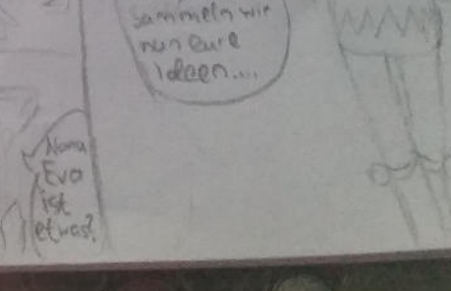 sammeln wir
nun eure
Ideen....
Nanu
Eva
ist
etwas?